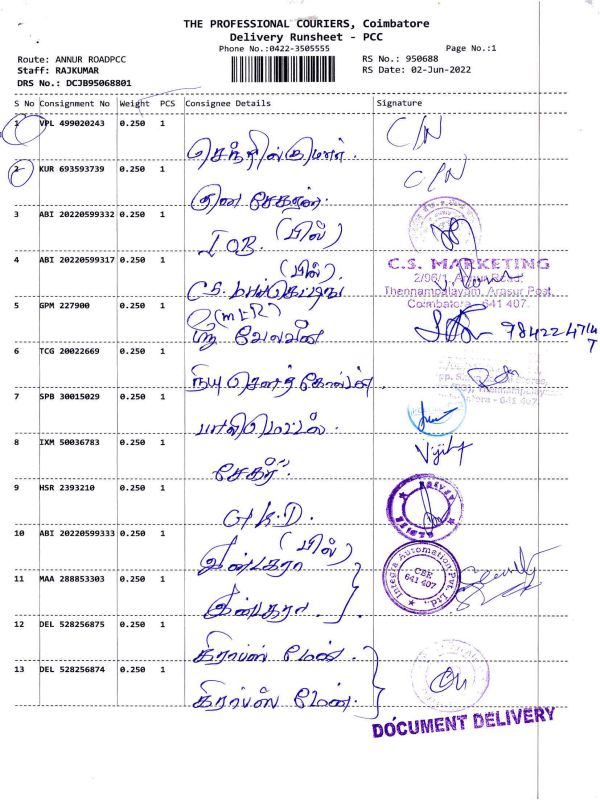 THE PROFESSIONAL COURIERS, Coimbatore
Delivery Runsheet - PCC
Phone No.:0422-3505555
Page No.:1
Route: ANNUR ROADPCC
RS No.: 950688
Staff: RAJKUMAR
RS Date: 02-Jun-2022
DRS No.: DCJB95068801
S No Consignment No Weight PCS Consignee Details Signature
1 VPL 499020243 0.250 1 C/N
செந்தில்குமார்.
2 KUR 693593739 0.250 1 C/N
குண சேகரன்.
3 ABI 20220599332 0.250 1
I.O.B. (பில்)
4 ABI 20220599317 0.250 1 (பில்).
C.S. மார்கெட்டிங்
C.S. MARKETING
2/96/1, Annur Road,
Thennampalayam, Arasur Post,
Coimbatore - 641 407.
5 GPM 227900 0.250 1
வேலவன்
6 TCG 20022669 0.250 1
நியூ கோல்டன்.
7 SPB 30015029 0.250 1
8 IXM 50036783 0.250 1 Vijith
சேகர்
9 HSR 2393210 0.250 1
G.K.D.
10 ABI 20220599333 0.250 1 (பில்)
இன்டகரா
11 MAA 288853303 0.250 1
இன்டகரா.
Integra Automation Pvt. Ltd.,
CBE
641 407
12 DEL 528256875 0.250 1
கிராப்ஸ் மேன்.
13 DEL 528256874 0.250 1
கிராப்ஸ் மேன்.
DOCUMENT DELIVERY